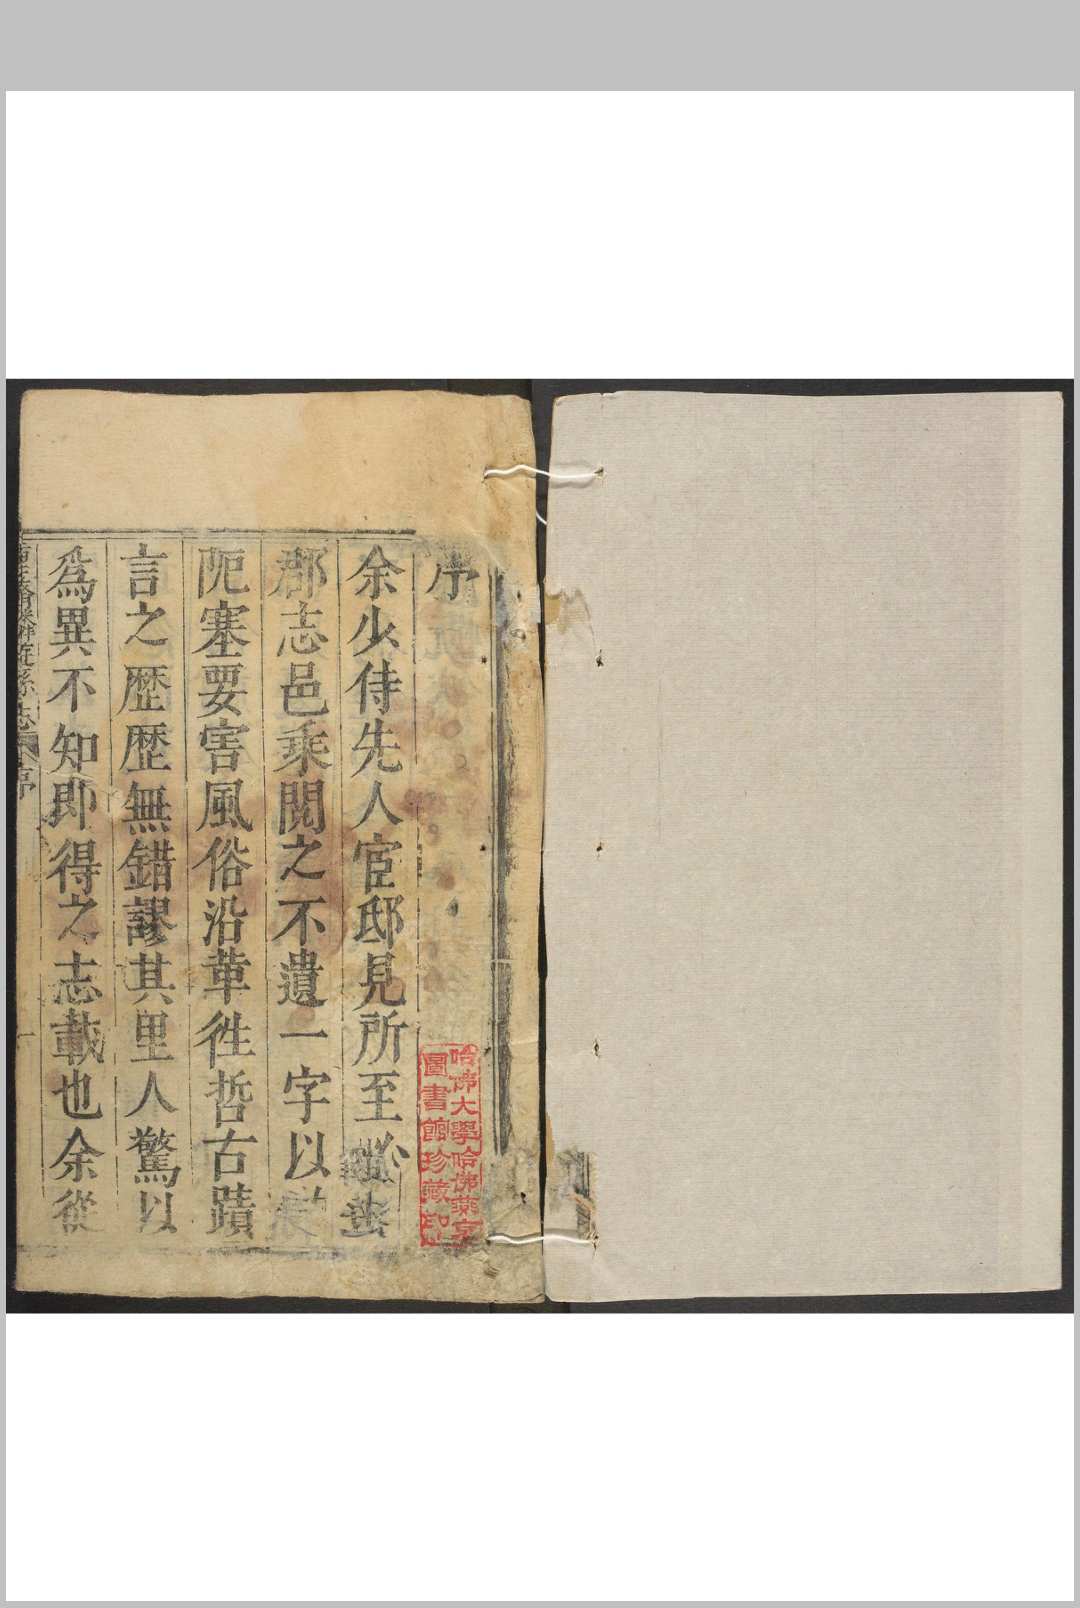 序
余少侍先人宦邸見所至必
郡志邑乘閱之不遺一字以
阨塞要害風俗沿革徃哲古蹟
言之歷歷無錯謬其里人驚以
爲異不知即得之志載也余從
縣志 序
一
哈佛大學哈佛燕京
圖書館珍藏印